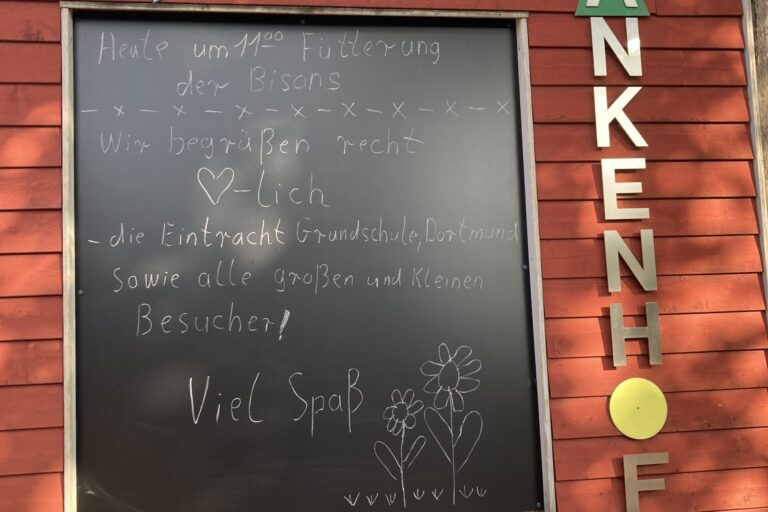 Heute um 11⁰⁰ Fütterung
der Bisons
– x – x – x – x – x – x – x – x
Wir begrüßen recht
♡-lich
- die Eintracht Grundschule, Dortmund
sowie alle großen und kleinen
Besucher!
Viel Spaß
ANKENHOF